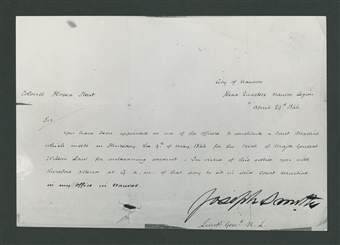 City of Nauvoo
Head Quarters Nauvoo Legion
April 29th 1844
Colonel Hosea Stout
Sir
You have been appointed as one of the officers to constitute a Court Martial
which meets on Thursday the 9th of May 1844 for the trial of Major General
Wilson Law for unbecoming conduct - In virtue of this notice you will
therefore attend at 9 a.m. of that day to sit in said Court directed
in my office in Nauvoo.
Joseph Smith
Lieut. Genl. N. L